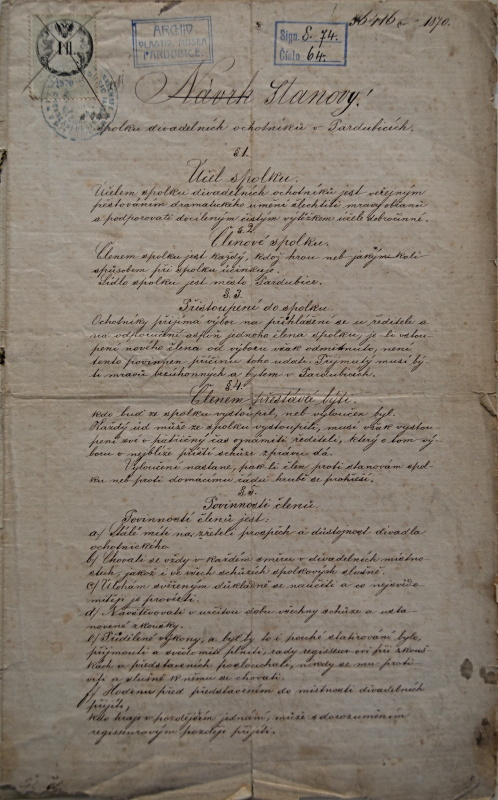 ARCHIV
VLASTIV. MUSEA
PARDUBICE.
Sign. S. 74.
Číslo 64.
1870.
Návrh Stanovy!
Spolku divadelních ochotníků v Pardubicích.
§ 1.
Účel spolku.
Účelem spolku divadelních ochotníků jest veřejným
pěstováním dramatického umění šlechtiti mrav
a podporovati docíleným čistým výtěžkem účele dobročinné.
§. 2.
Členové spolku.
Členem spolku jest každý, kdož hrou neb jakýmkoli
spůsobem při spolku účinkuje.
Sídlo spolku jest město Pardubice.
§. 3.
Přistoupení do spolku.
Ochotníky přijímá výbor na přihlášení se u ředitele a
na odporučení aspoň jednoho člena spolku, je-li vstou-
pení nového člena od výboru však odmítnuto, není
tento povinnen příčinu toho udati. Přijmutý musí bý-
ti mravů bezúhonných a bytem v Pardubicích.
§. 4.
Členem přestává býti
kdo buď ze spolku vystoupil, neb vyloučen byl.
Každý úd může ze spolku vystoupiti, musí však vystou-
pení své v patřičný čas oznámiti řediteli, který o tom vý-
boru v nejbliže příští schůzi zprávu dá.
Vyloučení nastane, pak-li člen proti stanovám spol-
ku neb proti domácímu řádu hrubě se prohřeší.
§. 5.
Povinnosti členů.
Povinností členů jest:
a) Stále míti na zřeteli prospěch a důstojnost divadla
ochotnického.
b) Chovati se vždy v každém směru v divadelních místno-
stech, jakož i ve všech schůzích spolkových slušně.
c) Úlohám svěřeným důkladně se naučiti a co nejsvědo-
mitěji je provésti.
d) Navštěvovati v určitou dobu všechny schůze a usta-
novené zkoušky.
e) Přidělené výkony, a byť by to i pouhé statirování bylo,
přijmouti a svědomitě plniti, rady regisseurovi při zkouš-
kách a představeních poslouchati, nikdy se mu proti
viti a slušně k němu se chovati.
f) Hodinu před představením do místnosti divadelních
přijíti,
kdo hraje v pozdějším jednání, může s dorozuměním
regisseurovým později přijíti.